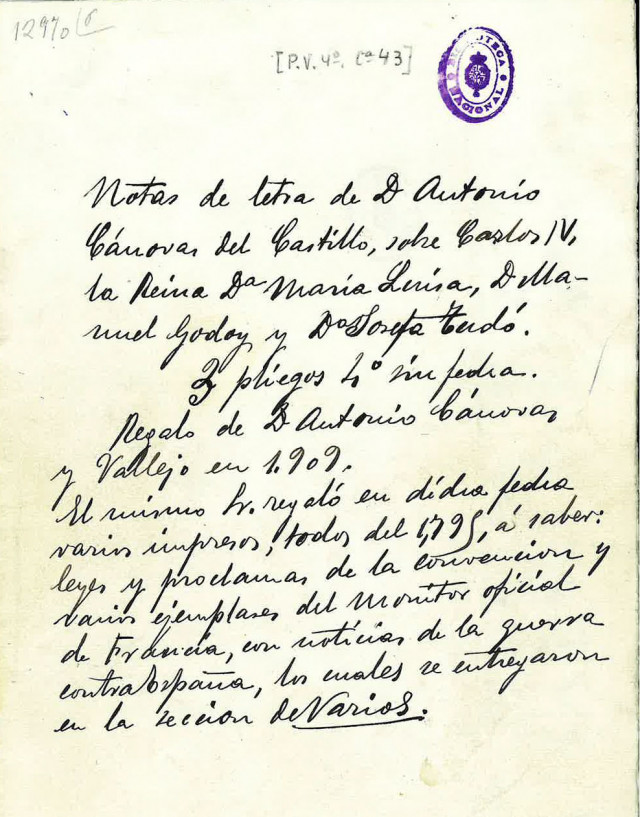 12970/6
[P.V. 4º. Cª 43]
BIBLIOTECA NACIONAL
Notas de letra de D Antonio
Cánovas del Castillo, sobre Carlos IV,
la Reina Dª María Luisa, D Ma-
nuel Godoy y Dª Josefa Tudó.
3 pliegos 4º sin fecha.
Regalo de D Antonio Cánovas
y Vallejo en 1.909.
El mismo Sr. regaló en dicha fecha
varios impresos, todos del 1,795, á saber:
leyes y proclamas de la convencion y
varios ejemplares del Monitor oficial
de Francia, con noticias de la guerra
contra España, los cuales se entregaron
en la seccion de Varios.